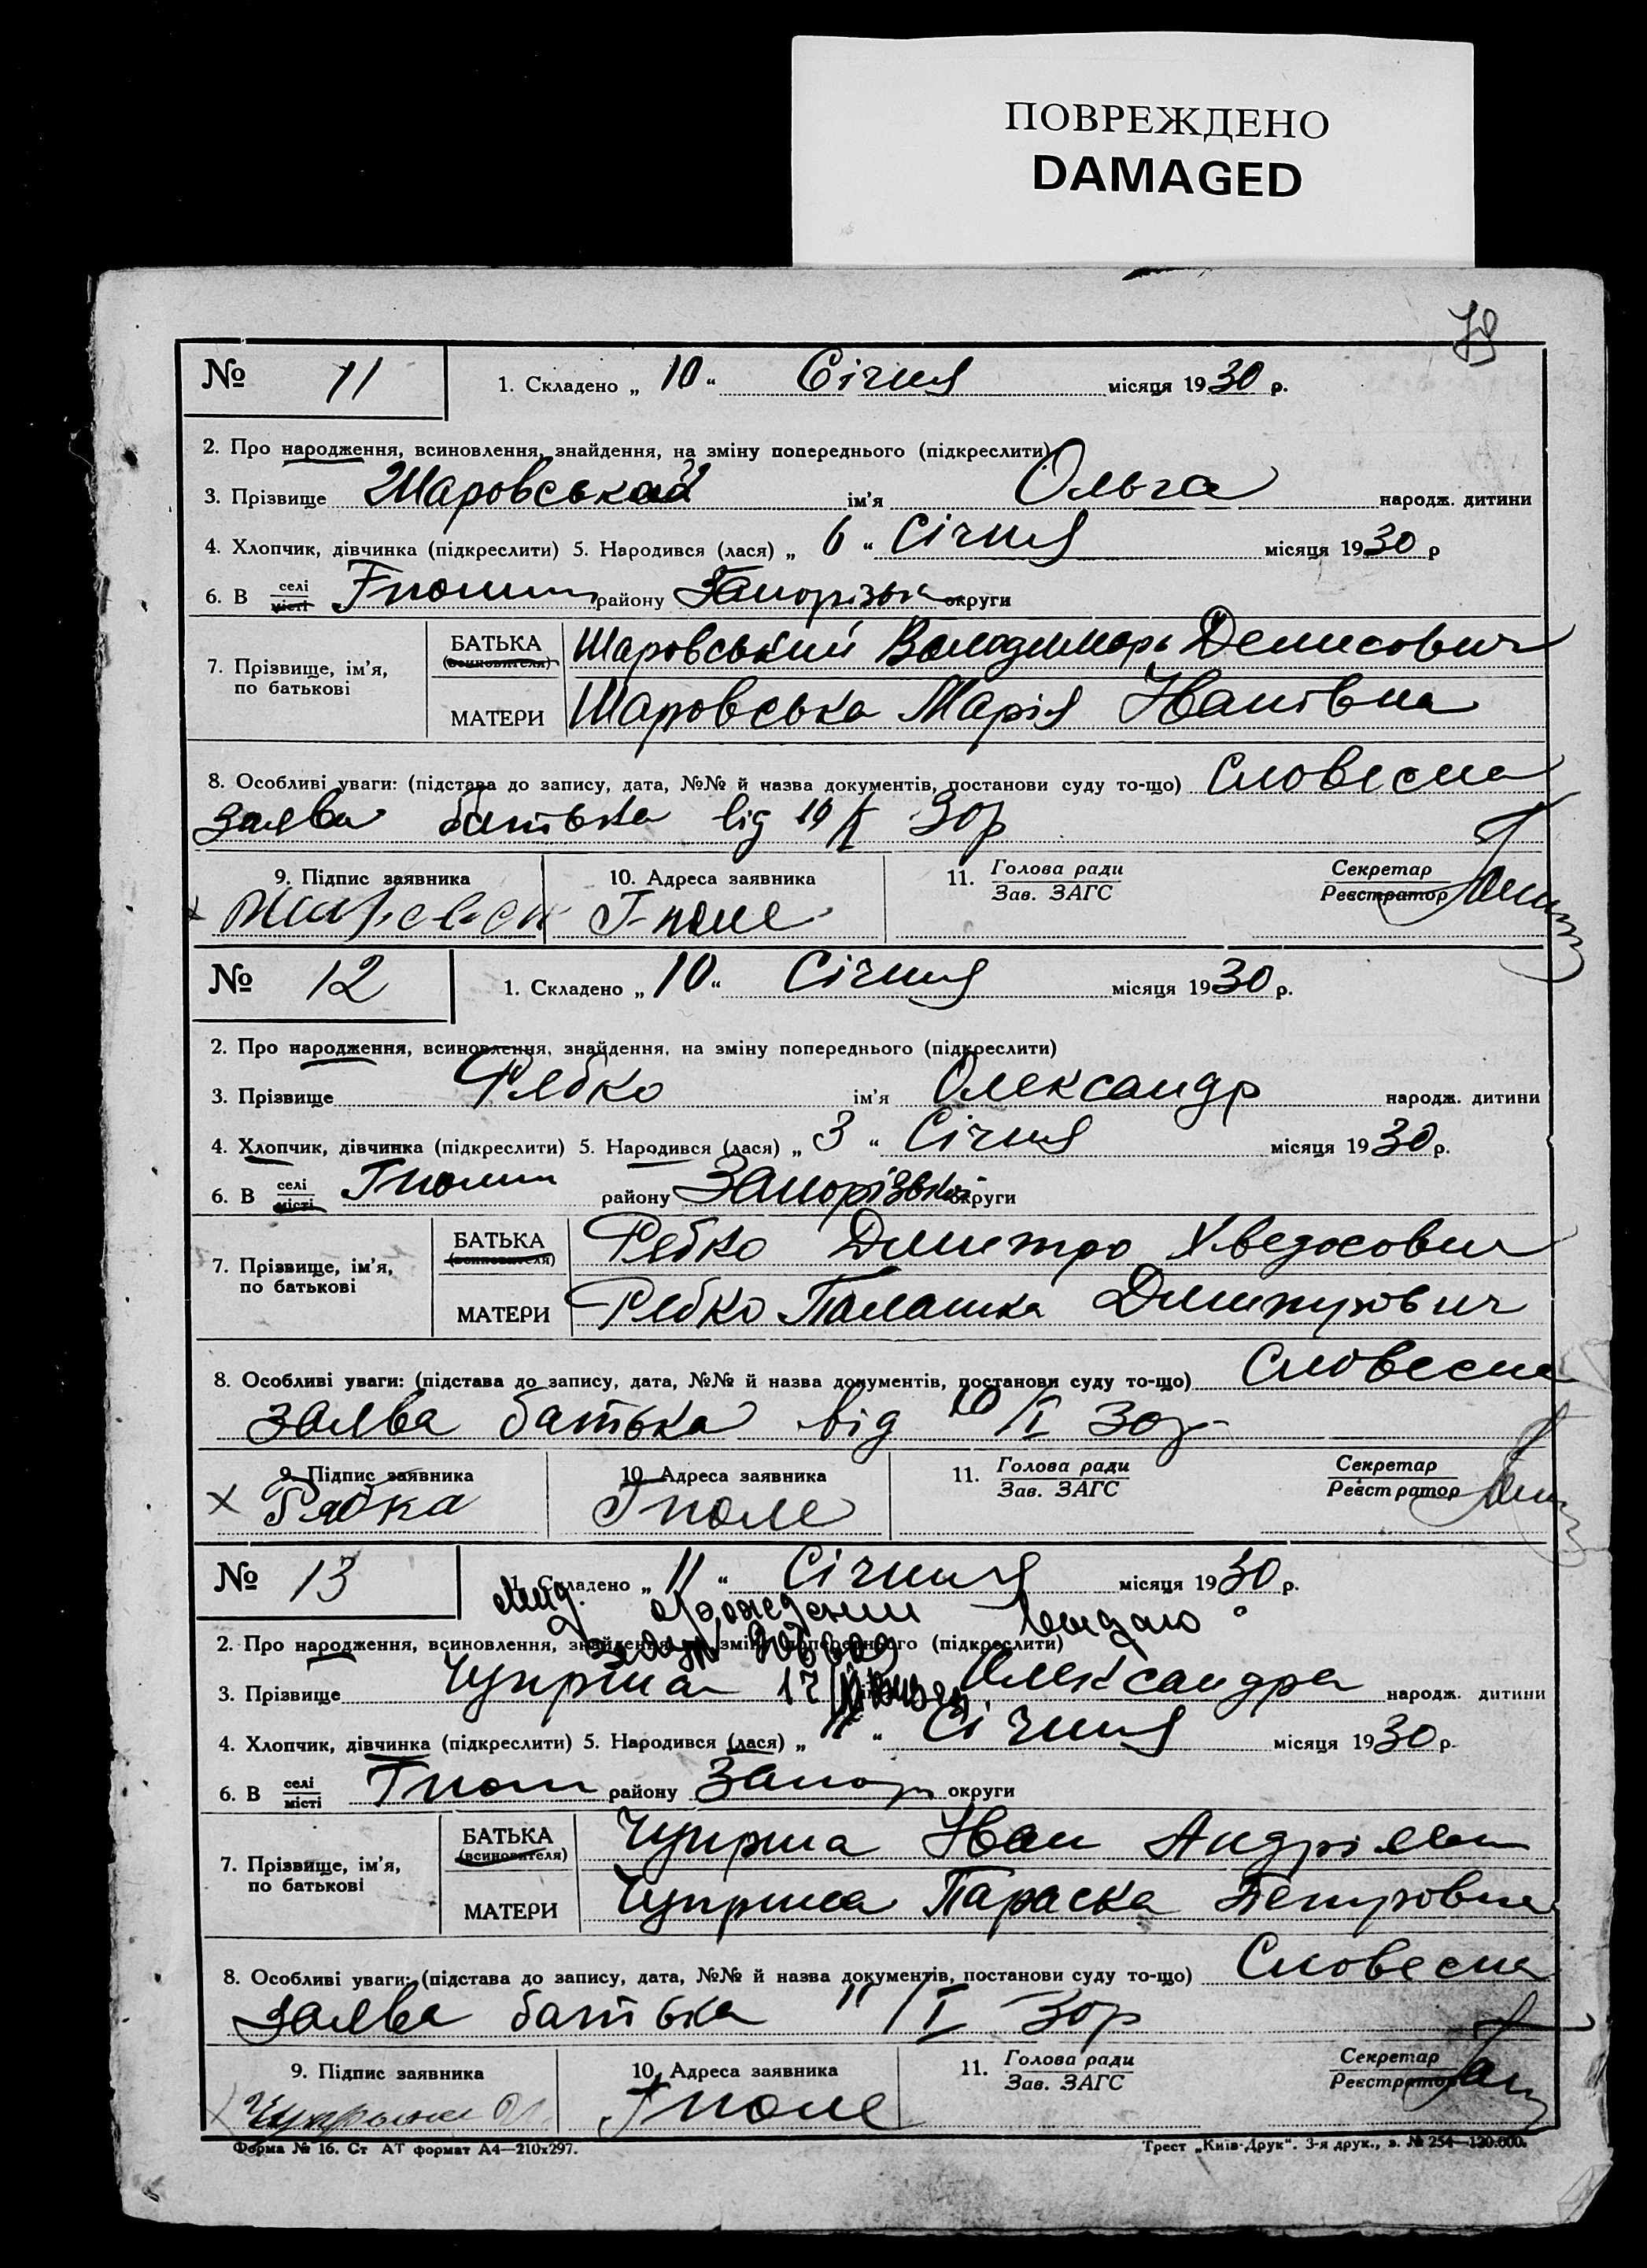 ПОВРЕЖДЕНО
DAMAGED
№ 11 1. Складено „ 10 “ Січня місяця 1930 р.
2. Про народження, всиновлення, знайдення, на зміну попереднього (підкреслити)
3. Прізвище ім'я Ольга народж. дитини
4. Хлопчик, дівчинка (підкреслити) 5. Народився (лася) „ 6 “ Січня місяця 1930 р
6. В селі місті району округи
7. Прізвище, ім'я, по батькові
БАТЬКА (всиновителя) Шаровський Володимирь Денисович
МАТЕРИ Шаровська Марія Іванівна
8. Особливі уваги: (підстава до запису, дата, №№ й назва документів, постанови суду то-що) Словесна
заява батька від 10/I 30р
9. Підпис заявника 10. Адреса заявника 11. Голова ради Зав. ЗАГС Секретар Реєстратор
Г-поле
№ 12 1. Складено „ 10 “ Січня місяця 1930 р.
2. Про народження, всиновлення, знайдення, на зміну попереднього (підкреслити)
3. Прізвище Рябко ім'я Олександр народж. дитини
4. Хлопчик, дівчинка (підкреслити) 5. Народився (лася) „ 3 “ Січня місяця 1930 р.
6. В селі місті району округи
7. Прізвище, ім'я, по батькові
БАТЬКА (всиновителя) Рябко Дмитро Хведосович
МАТЕРИ Рябко Палашка
8. Особливі уваги: (підстава до запису, дата, №№ й назва документів, постанови суду то-що) Словесна
заява батька від 10/I 30р
9. Підпис заявника 10. Адреса заявника 11. Голова ради Зав. ЗАГС Секретар Реєстратор
Рябка Гполе
№ 13 1. Складено „ 11 “ Січня місяця 1930 р.
2. Про народження, всиновлення, знайдення, на зміну попереднього (підкреслити)
3. Прізвище Чуприна Олександра народж. дитини
4. Хлопчик, дівчинка (підкреслити) 5. Народився (лася) „ “ Січня місяця 1930 р.
6. В селі місті району округи
7. Прізвище, ім'я, по батькові
БАТЬКА (всиновителя) Чуприна Іван
МАТЕРИ Чуприна Параска Петровна
8. Особливі уваги: (підстава до запису, дата, №№ й назва документів, постанови суду то-що) Словесна
заява батька 11/I 30р
9. Підпис заявника 10. Адреса заявника 11. Голова ради Зав. ЗАГС Секретар Реєстратор
Гполе
Форма № 16. Ст АТ формат А4—210х297. Трест „Київ-Друк“. 3-я друк., з. № 254—120.000.